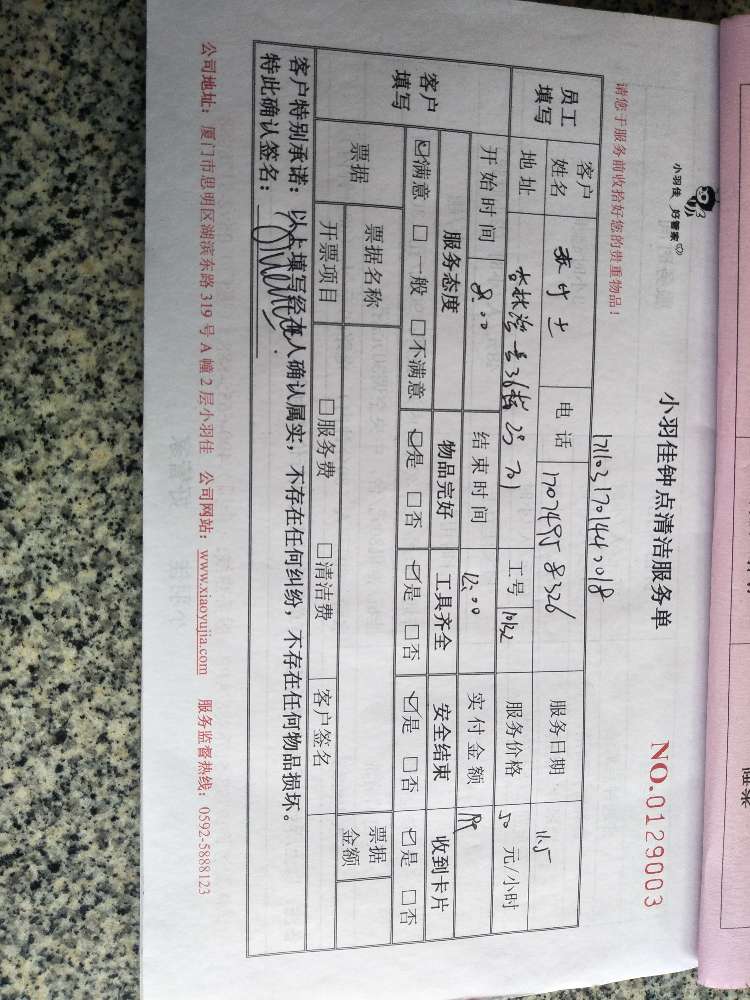 小羽佳 好管家
小羽佳钟点清洁服务单
NO.0129003
请您于服务前收拾好您的贵重物品！
员工填写
客户姓名
女士
电话
17074958326
服务日期
11.5
地址
工号
服务价格
50 元/小时
开始时间
8:00
结束时间
12:00
实付金额
客户填写
服务态度
物品完好
工具齐全
安全结束
收到卡片
☑满意 □一般 □不满意
☑是 □否
☑是 □否
☑是 □否
☑是 □否
票据
票据名称
票据金额
开票项目
□服务费 □清洁费
客户签名
客户特别承诺：以上填写经本人确认属实，不存在任何纠纷，不存在任何物品损坏。
特此确认签名：
公司地址：厦门市思明区湖滨东路 319 号 A 幢 2 层小羽佳 公司网站：www.xiaoyujia.com 服务监督热线：0592-5888123